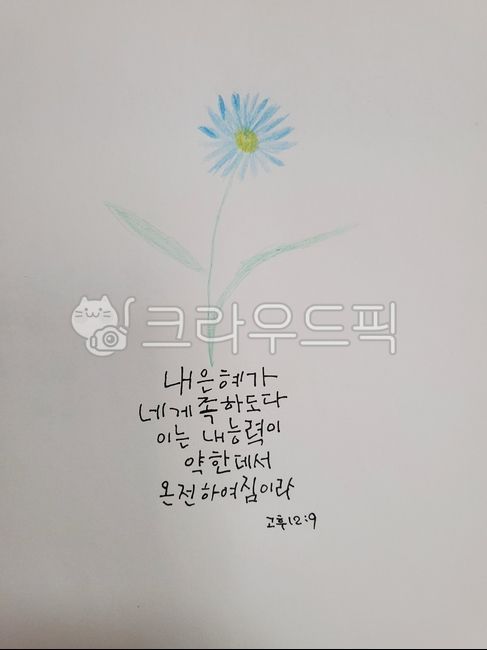 크라우드픽
내은혜가
네게 족하도다
이는 내능력이
약한데서
온전하여짐이라
고후12:9